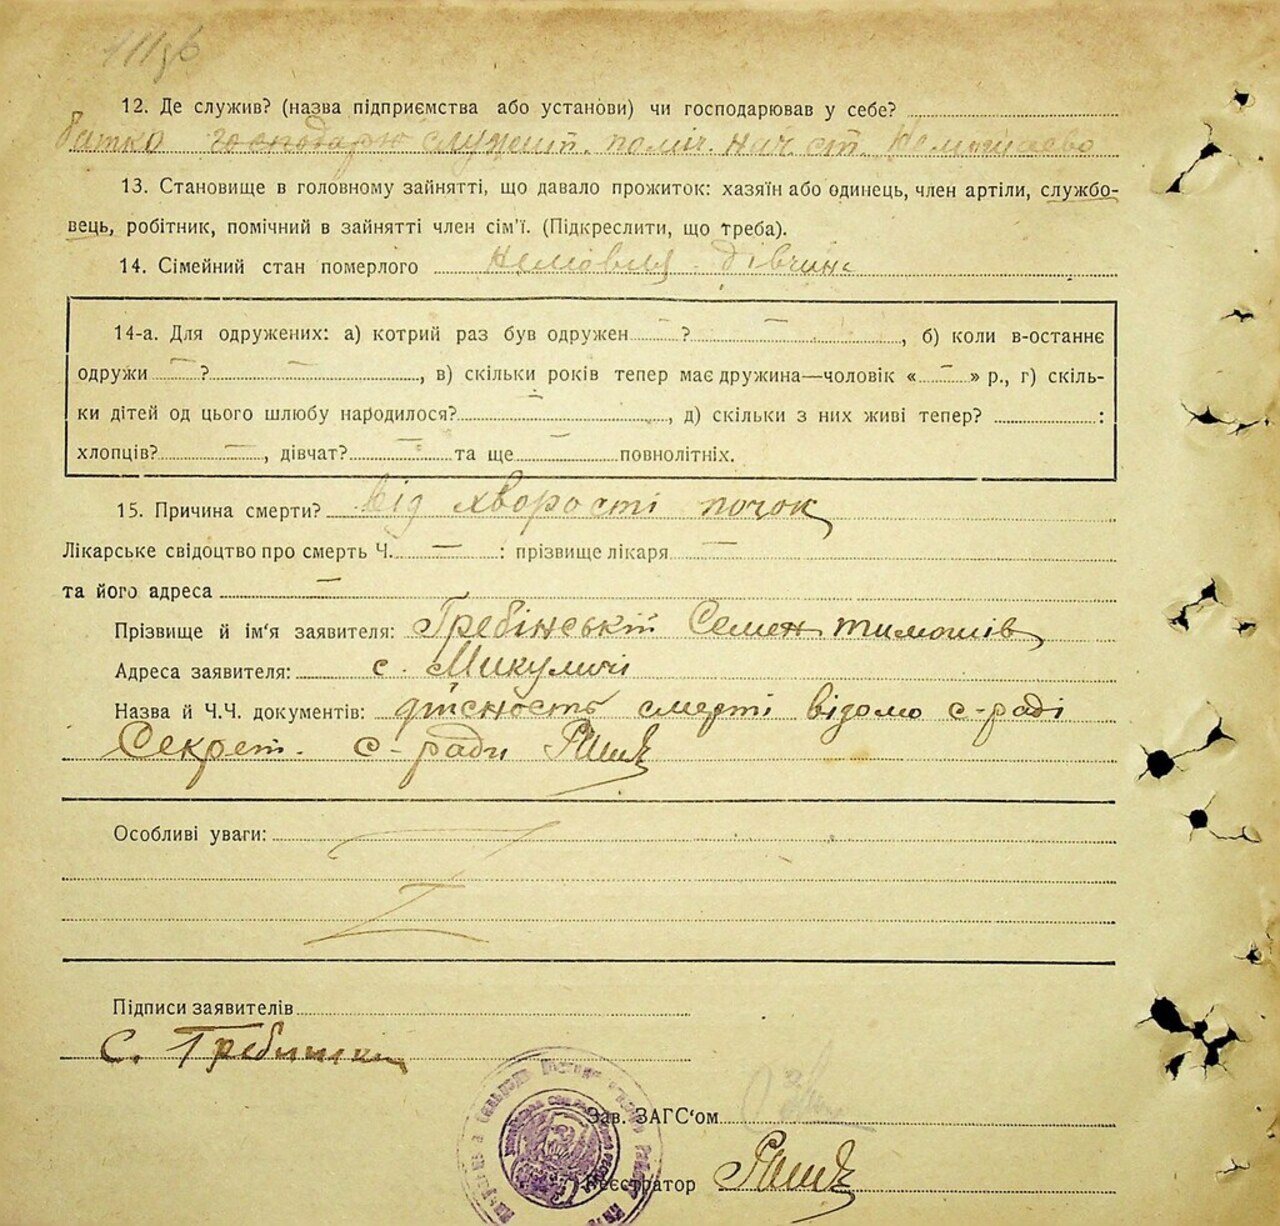 12. Де служив? (назва підприємства або установи) чи господарював у себе?
батко господарю служит. поміч. нач. ст. Немишаєво
13. Становище в головному зайнятті, що давало прожиток: хазяїн або одинець, член артіли, службо-
вець, робітник, помічний в зайнятті член сім'ї. (Підкреслити, що треба).
14. Сімейний стан померлого Немовля дівчина
14-а. Для одружених: а) котрий раз був одружен — ? —, б) коли в-останнє
одружи — ? —, в) скільки років тепер має дружина—чоловік « — » р., г) скіль-
ки дітей од цього шлюбу народилося? —, д) скільки з них живі тепер? :
хлопців? —, дівчат? — та ще — повнолітніх.
15. Причина смерти? від хворости почок
Лікарське свідоцтво про смерть Ч. — : прізвище лікаря —
та його адреса —
Прізвище й ім'я заявителя: Гребінський Семен тимошів
Адреса заявителя: с. Микуличі
Назва й Ч.Ч. документів: дійсность смерті відомо с-раді
Секрет. с-ради
Особливі уваги:
Підписи заявителів
С.
Зав. ЗАГС'ом
Реєстратор